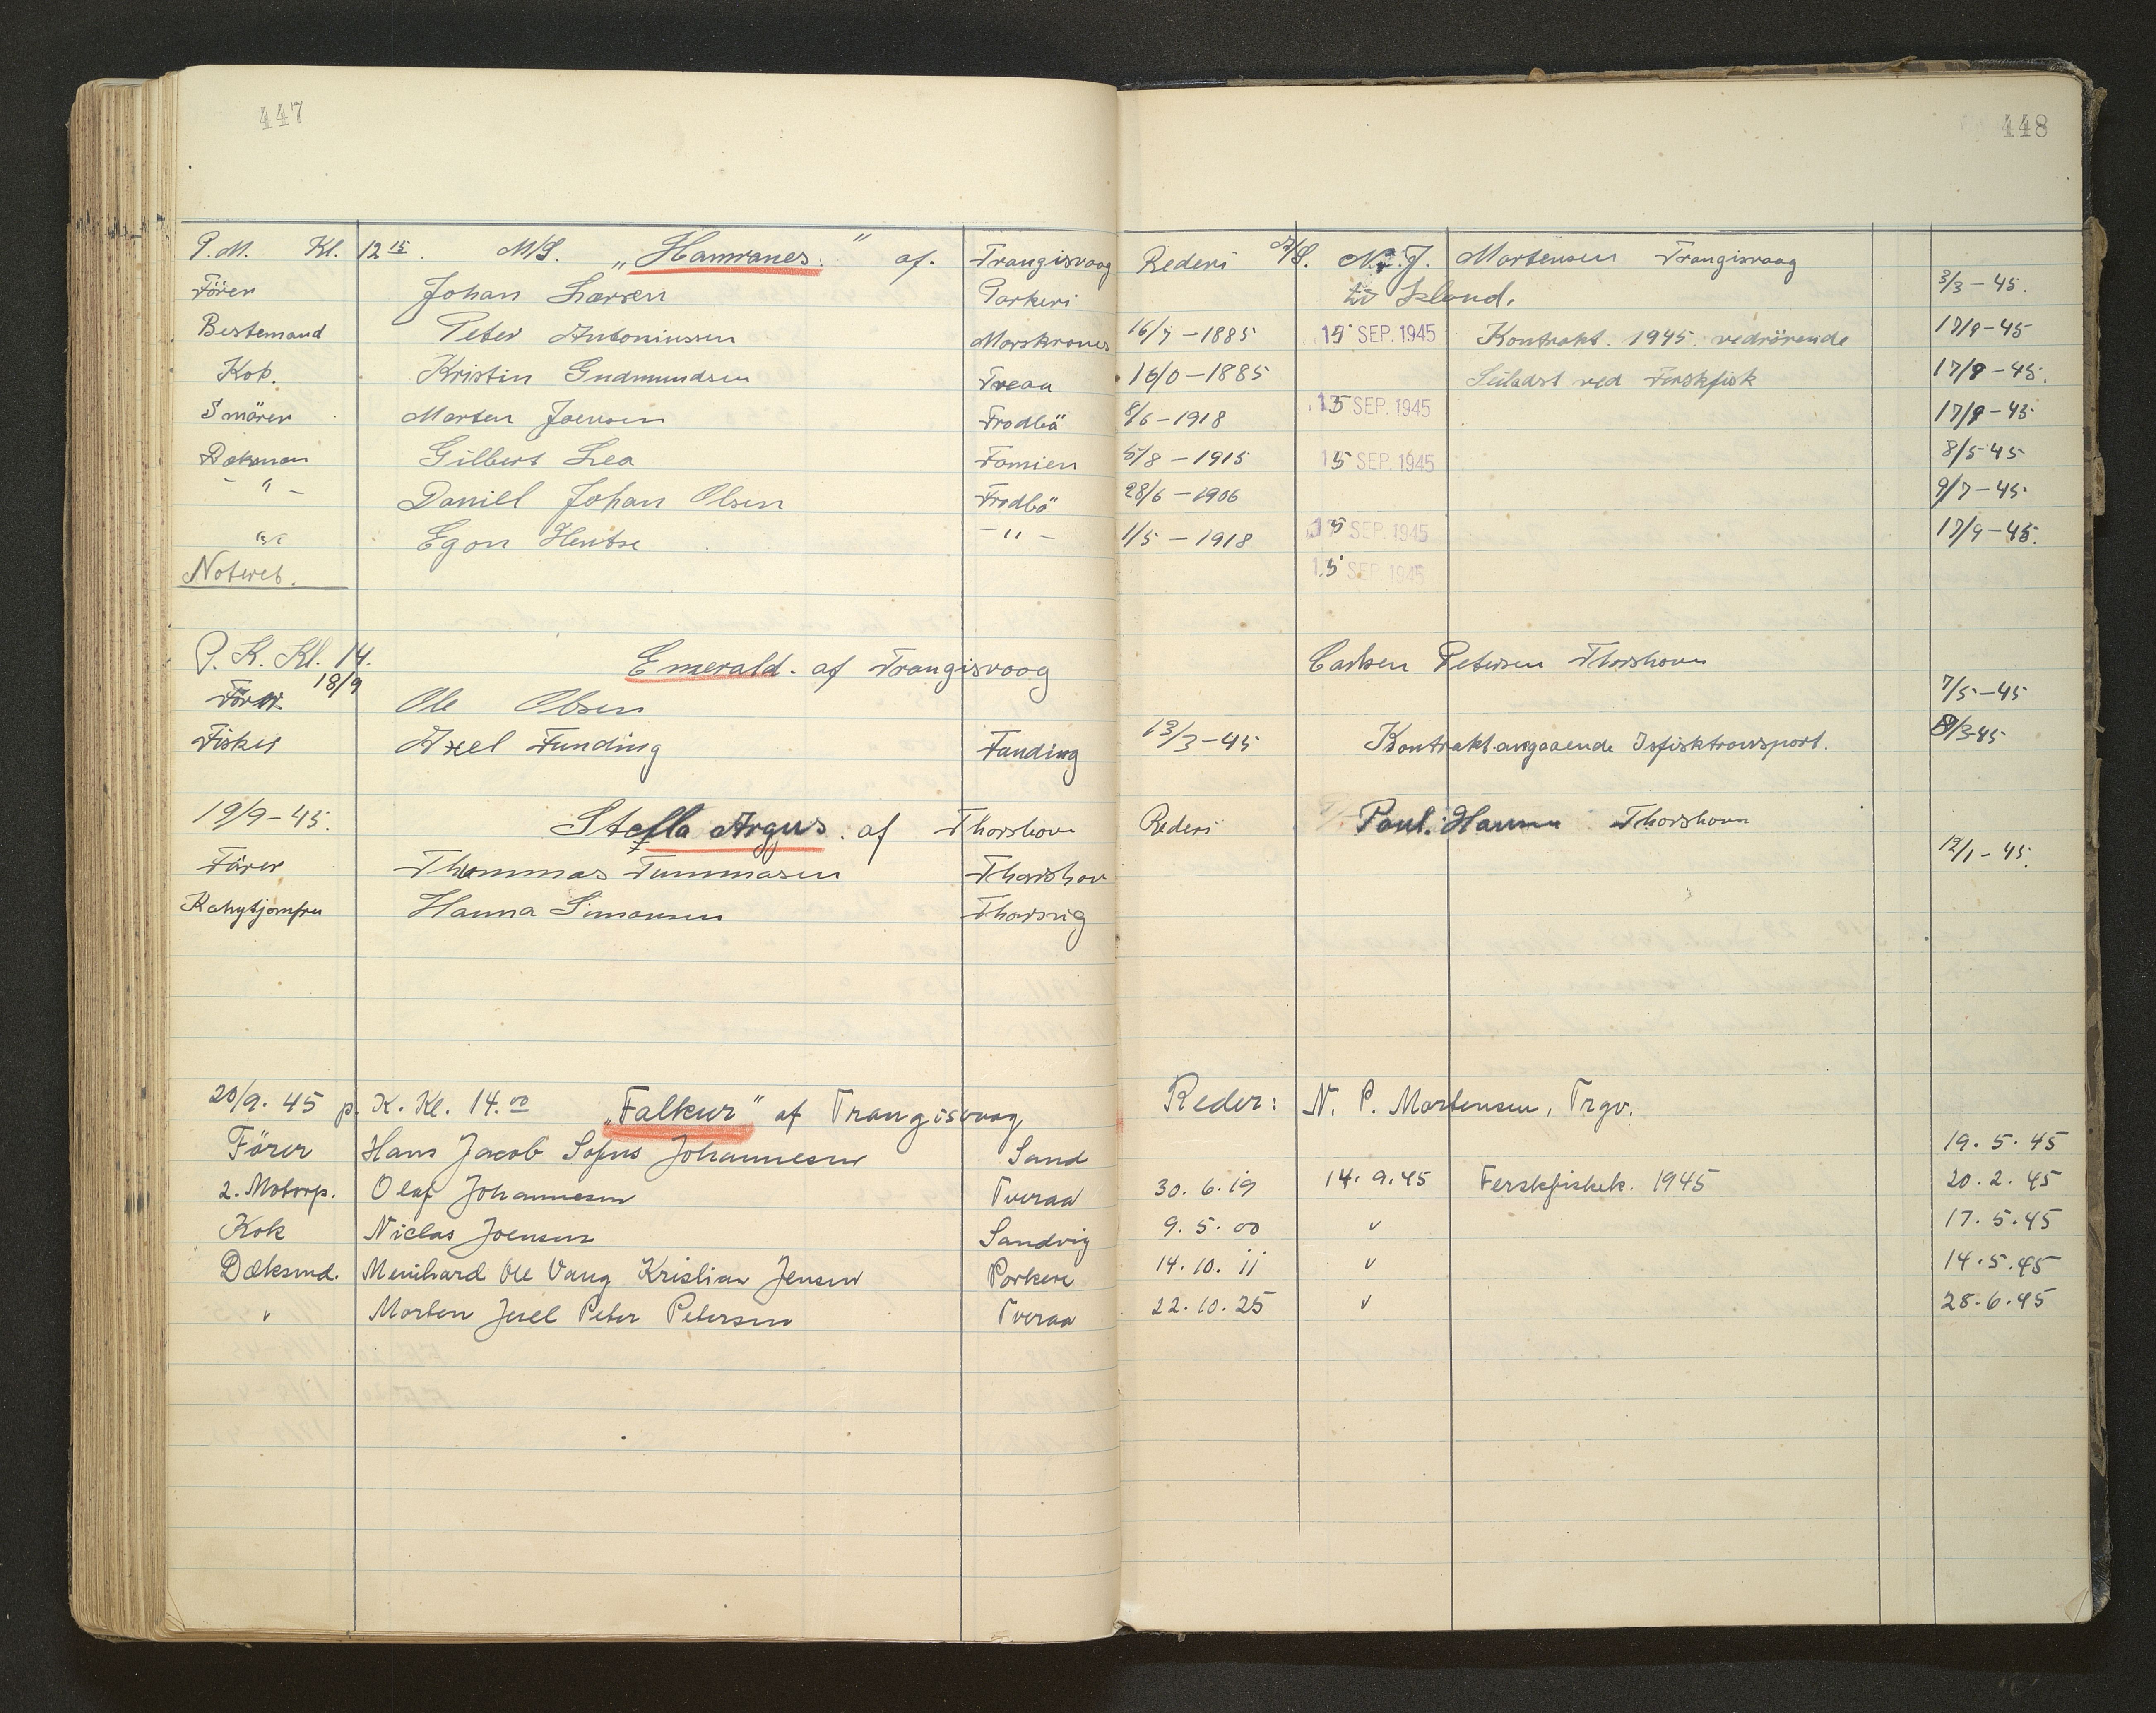 447
448
P.M. Kl. 12 15. M/S. „Hamranes." af. Trangisvaag Rederi A/S. N. J. Mortensen Trangisvaag
Förer Johan Larsen Porkeri til Island. 3/3-45.
Bestemand Peter Antoniussen 16/7-1885 15 SEP. 1945 Kontrakt. 1945. vedrörende 17/9-45
Kok. Kristin Gudmundsen Tveaa 16/0-1885 ved Ferskfisk 17/9-45.
Smörer Morten Joensen Frodbö 8/6-1918 15 SEP. 1945 17/9-45
Daksman Gilbert Lea Famien 5/8-1915 15 SEP. 1945 8/5-45
- " - Daniel Johan Olsen Frodbö 28/6-1906 9/7-45
" Egon Hentze - " - 1/5-1918 15 SEP. 1945 17/9-45.
15 SEP. 1945
P. K. Kl. 14. Emerald. af Trangisvaag Petersen Thorshavn
18/9
Förer Ole Olsen 7/5-45
Fisker Axel Funding Funding 13/3-45 Kontrakt angaaende Isfisktransport. 3-45
19/9-45. Stella Argus. af Thorshavn Rederi Poul. Hansen Thorshavn
Förer Thommas Tummasen Thorshav 12/1-45.
Kahytjomfru Hanna Simonsen Thorsvig
20/9. 45 p. K. Kl. 14.00 „Falkur" af Trangisvaag Reder: N. P. Mortensen, Trgv.
Förer Hans Jacob Sofus Johannesen Sand 19. 5. 45
2. Motorp. Olaf Johannesen Tveraa 30. 6. 19 14. 9. 45 Ferskfiskek. 1945 20. 2. 45
Kok Niclas Joensen Sandvig 9. 5. 00 " 17. 5. 45
Dæksmd. Meinhard Ole Vang Kristian Jensen Porkere 14. 10. 11 " 14. 5. 45
" Morten Juel Peter Petersen Tveraa 22. 10. 25 " 28. 6. 45